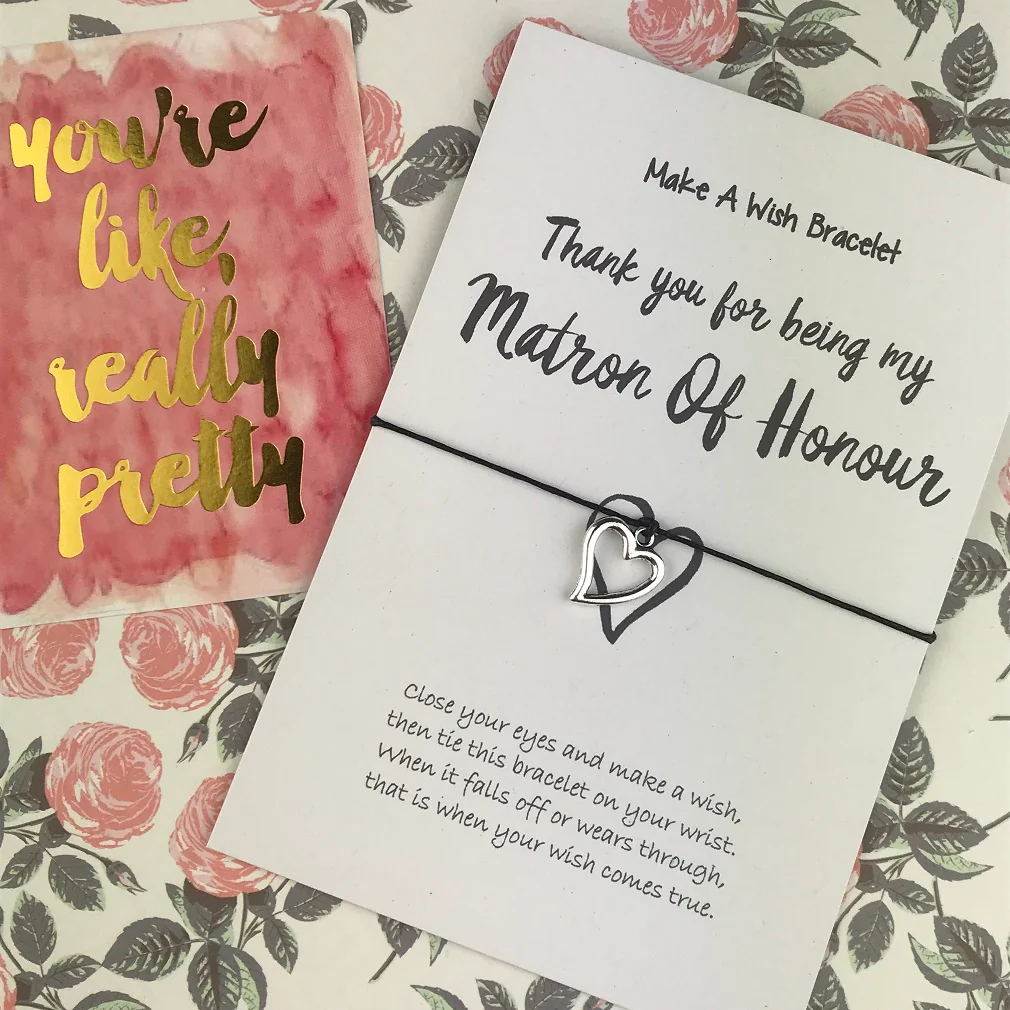 you're
like,
really
pretty
Make A Wish Bracelet
Thank you for being my
Matron Of Honour
Close your eyes and make a wish,
then tie this bracelet on your wrist.
When it falls off or wears through,
that is when your wish comes true.